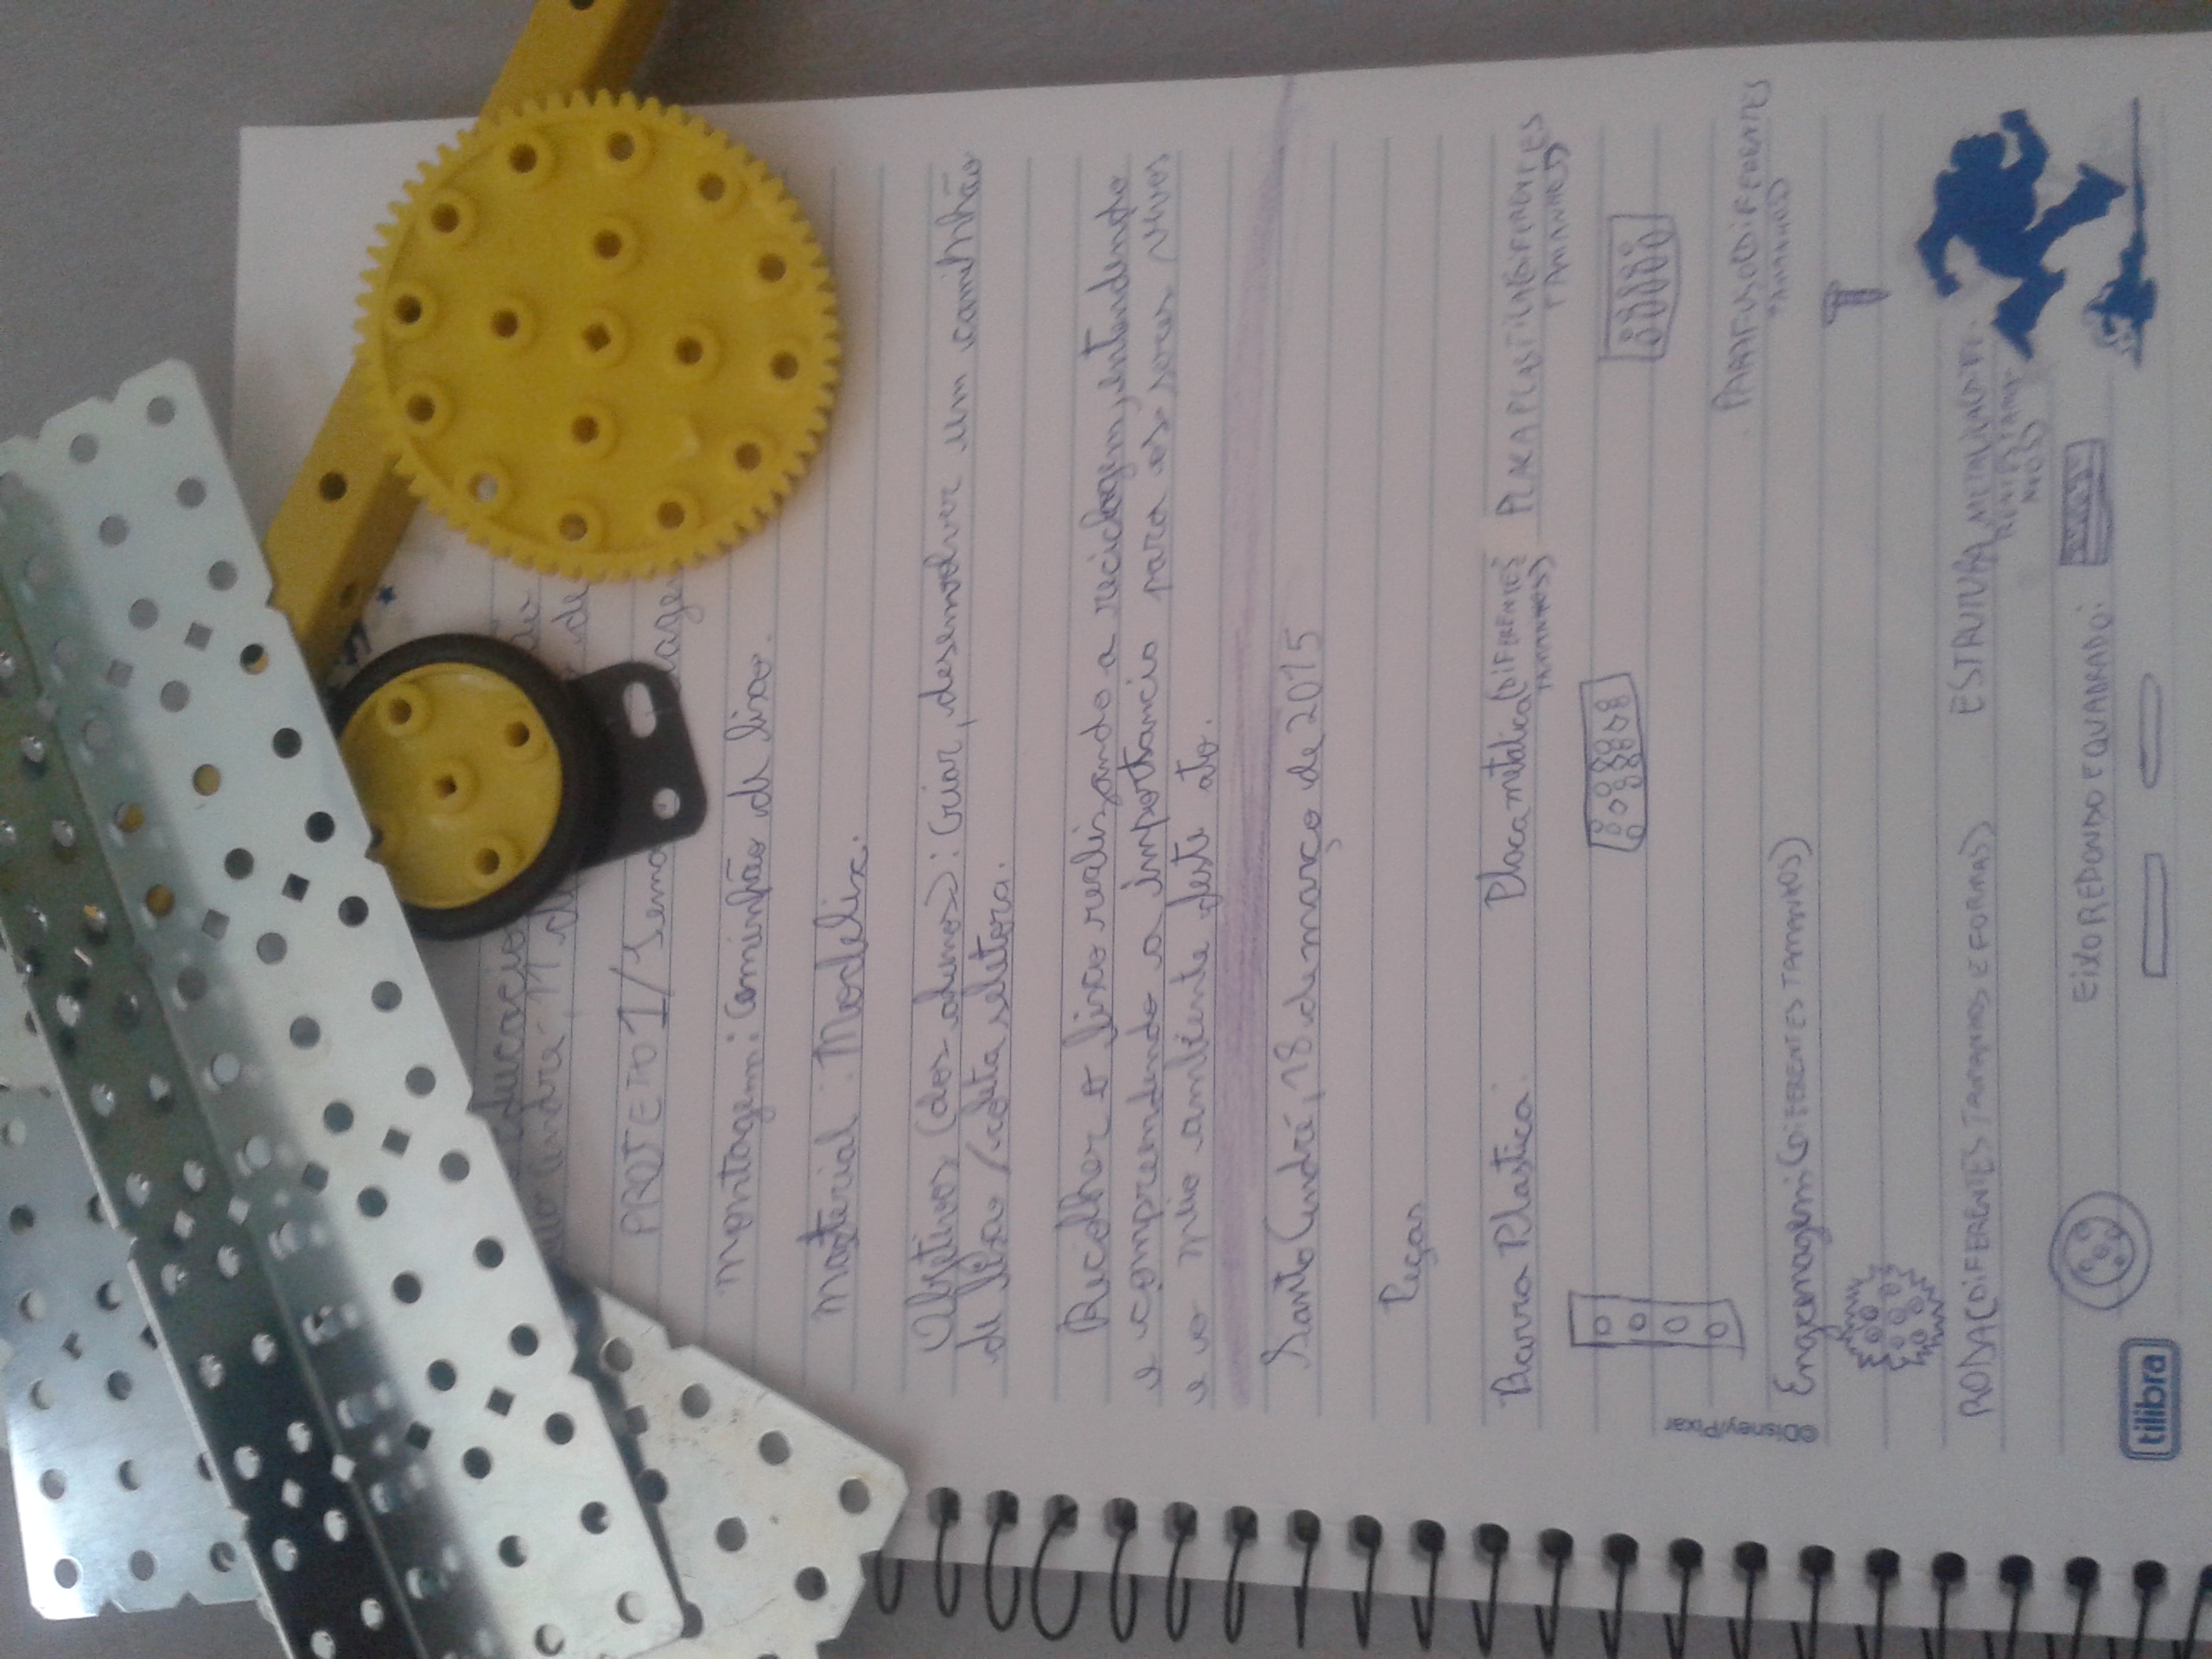 PROJETO 1/Sema
Montagem: Caminhão de lixo.
Material: Modelix.
Objetivos (dos alunos): Criar, desenvolver um caminhão
de lixo/coleta seletora.
Recolher o lixo realisando a reciclagem, entendendo
e comprendendo a importhancia para os seres vivos
e o meio ambiente deste ato.
Santo André, 18 de março de 2015
Peças
Barra Plastica. Placa metalica (DIFERENTES PLACA PLASTICA (DIFERENTES
TAMANHOS) TAMANHOS)
PARAFUSO (DIFERENTES
TAMANHOS)
Engrenagem (DIFERENTES TAMANHOS)
RODA (DIFERENTES TAMANHOS E FORMAS) ESTRUTURA METALICA
EIXO REDONDO E QUADRADO:
©Disney/Pixar
tilibra